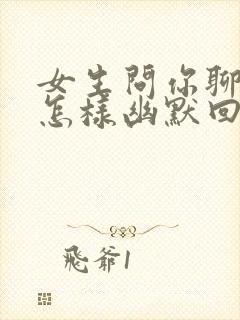 女生問你聊
怎樣幽默回
飛爺1